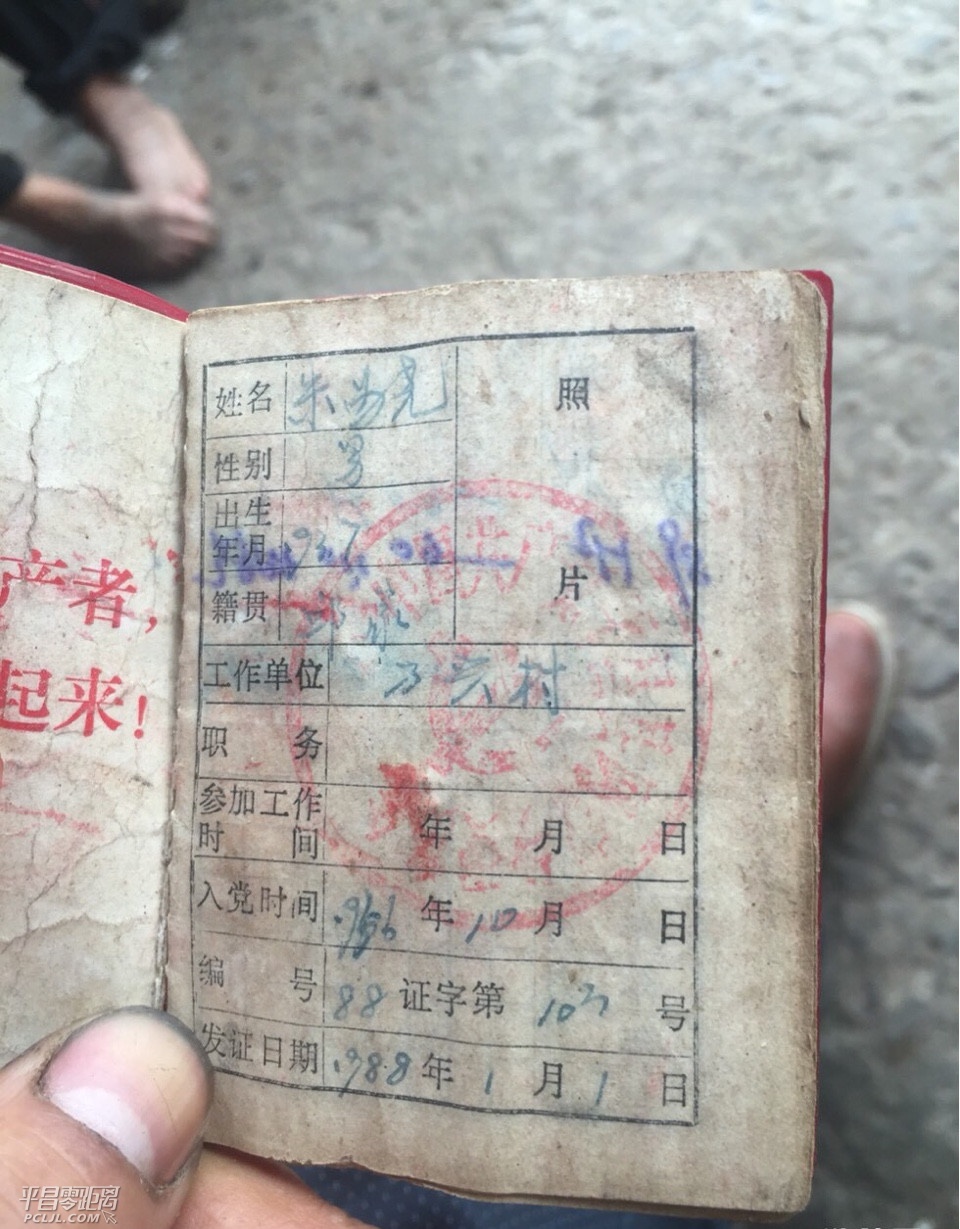 产者,
起来!
姓名 朱尚尧
照
性别 男
出生
年月
片
籍贯
工作单位 万兴村
职 务
参加工作
时 间 年 月 日
入党时间 1956 年 10 月 日
编 号 88 证字第 号
发证日期 1988 年 1 月 1 日
平昌零距离
PCLJL.COM